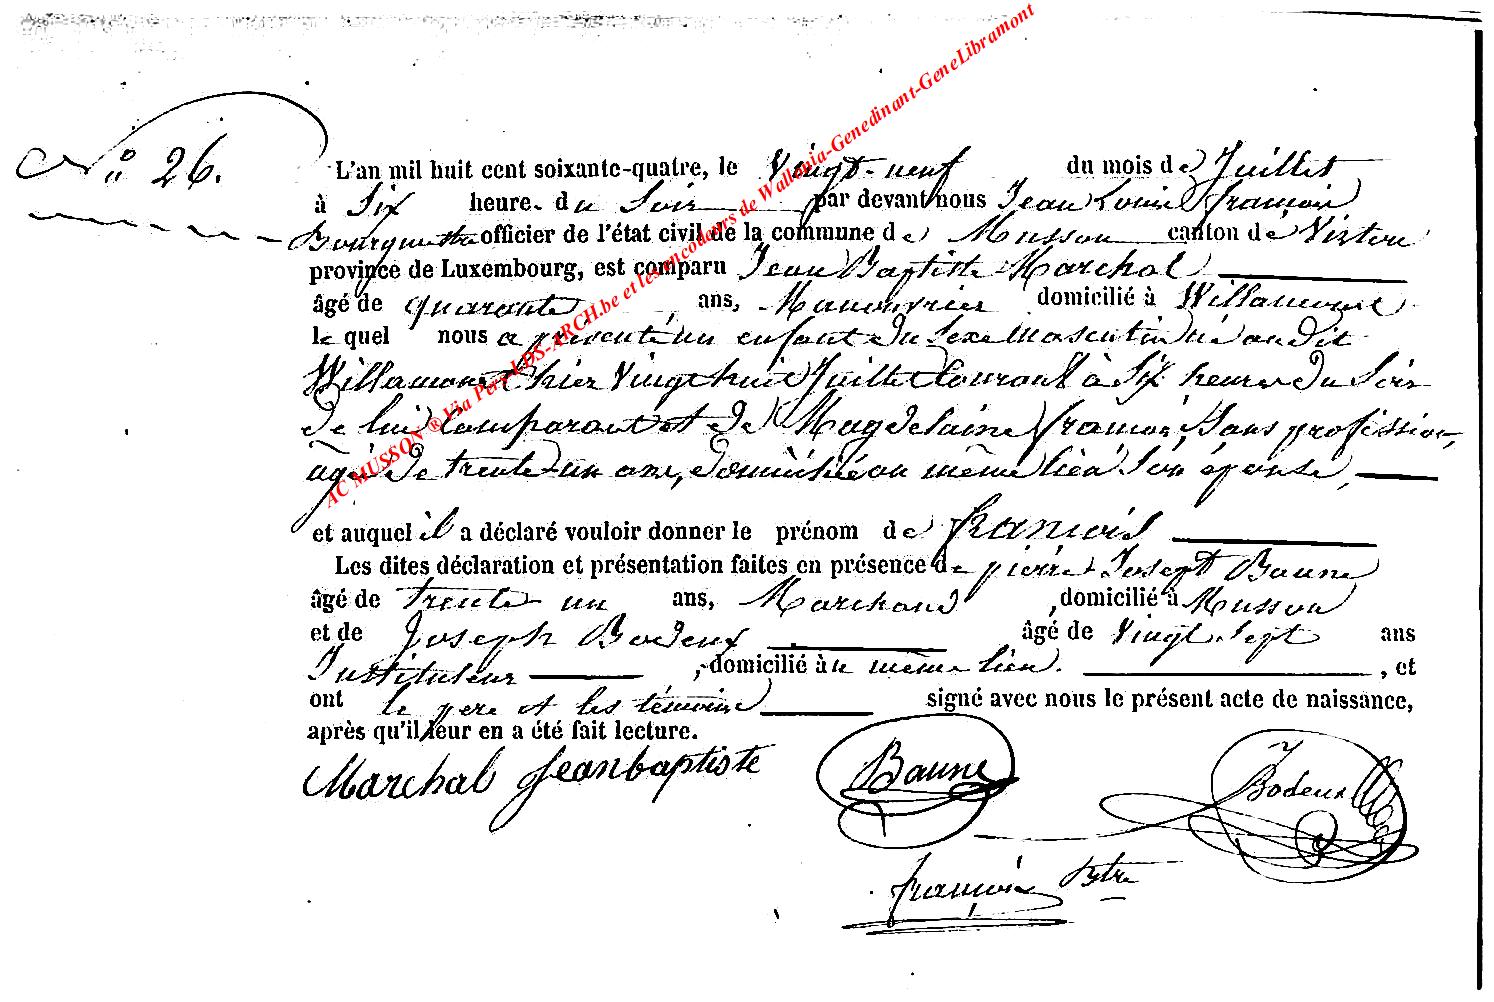 N° 26.
L'an mil huit cent soixante-quatre, le Vingt-neuf du mois de Juillet
à Six heure. du Soir par devant nous Jean Louis françois
Bourguettre officier de l'état civil de la commune de Musson canton de Virton
province de Luxembourg, est comparu Jean Baptiste Marchal
âgé de quarante ans, Manouvrier domicilié à Willancourt
le quel nous a présenté un enfant du Sexe Masculin né au dit
Willamont hier Vingt huit Juillet Courant à Six heures du Soir
de lui Comparant et de Magdelaine françois, Sans profession,
agée de trente un ans, domiciliée au même lieu Son épouse,
et auquel il a déclaré vouloir donner le prénom de françois
Les dites déclaration et présentation faites en présence de pierre Joseph Baune
âgé de trente un ans, Marchand, domicilié à Musson
et de Joseph Bodeux âgé de Vingt Sept ans
Instituteur, domicilié au même lieu., et
ont le pere et les témoins signé avec nous le présent acte de naissance,
après qu'il leur en a été fait lecture.
Marchal Jeanbaptiste Baune J Bodeux
françois Btre
AC MUSSON ® Via Pere LDS-ARCH.be et les encodeurs de Wallonia-Genedinant-GeneLibramont